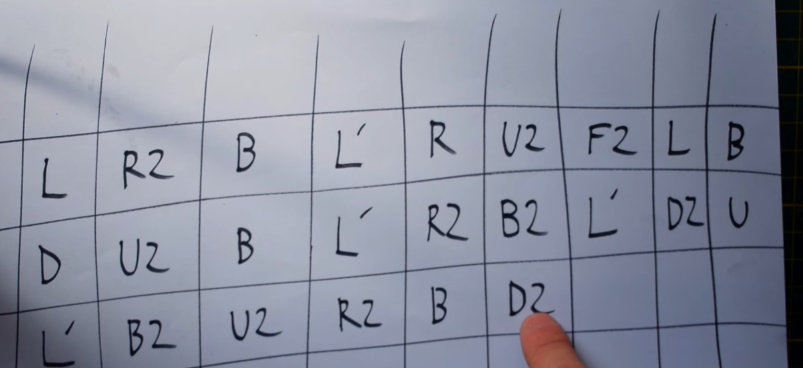 L R2 B L' R U2 F2 L B
D U2 B L' R2 B2 L' D2 U
L' B2 U2 R2 B D2